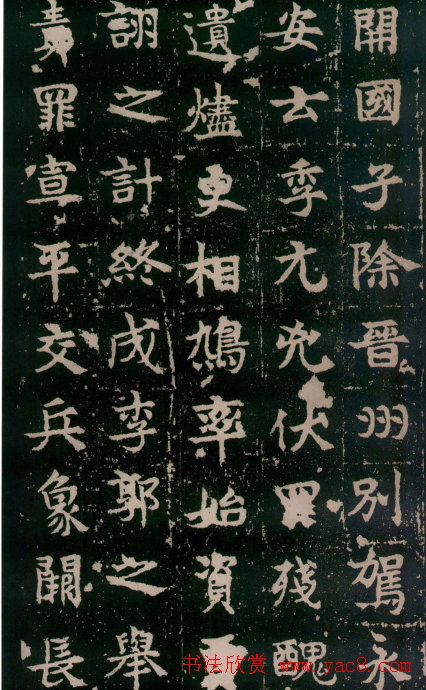 開國子除晉州別駕永
安士季元兇伏罪殘醜
遺燼更相鳩率始資賈
詡之計終成李郭之舉
責罪宣平交兵象闕長
书法欣赏 www.yac8.com